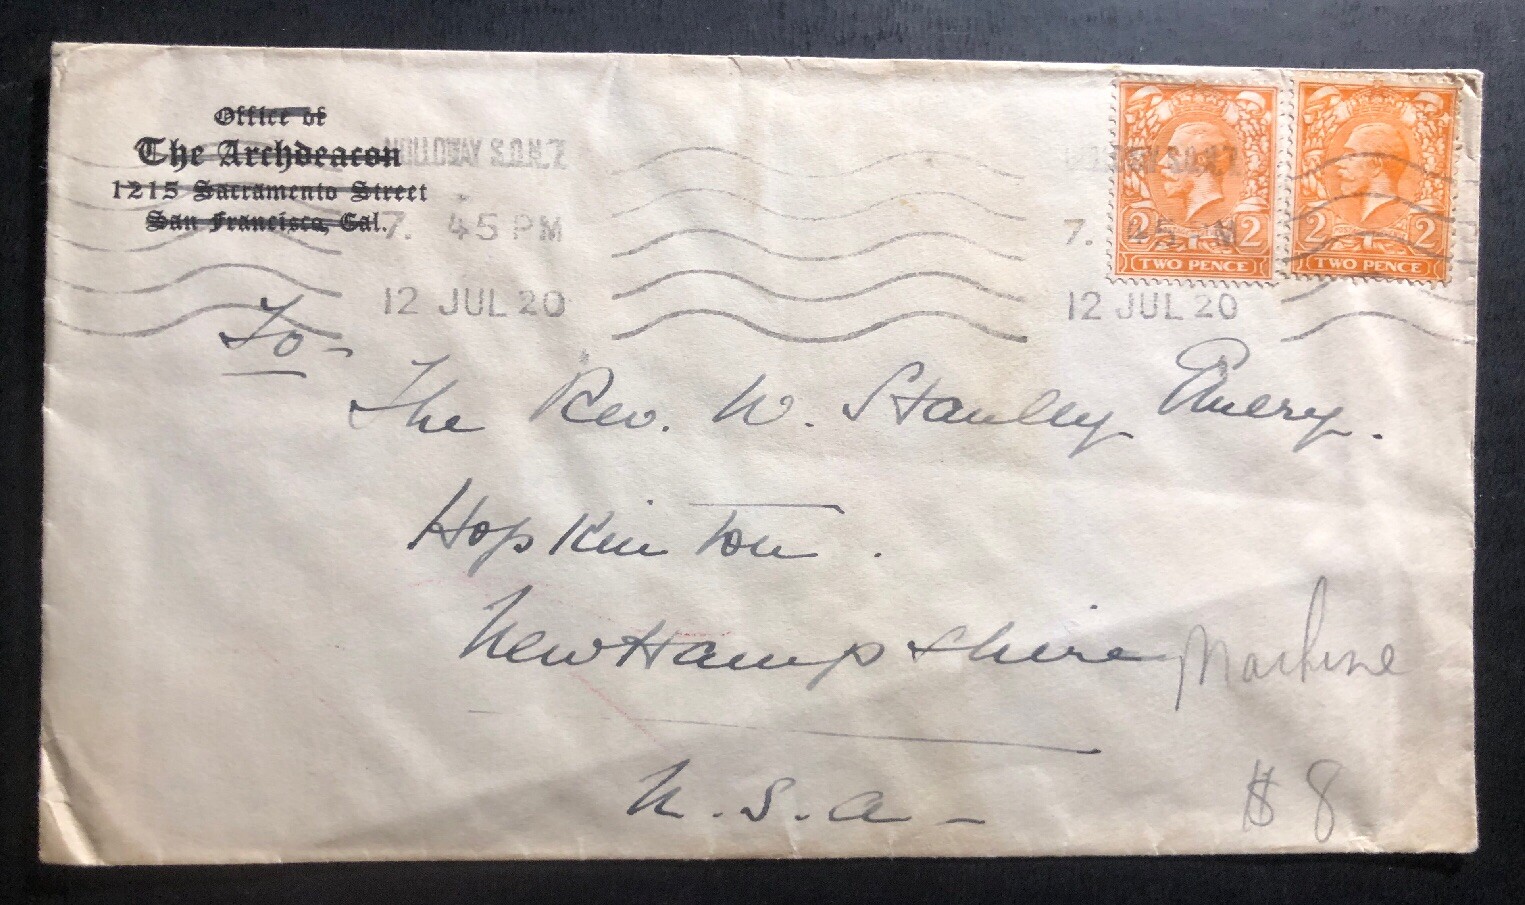 Office of
The Archdeacon
1215 Sacramento Street
San Francisco, Cal.
HOLLOWAY S.O.N.7.
7. 45 PM
12 JUL 20
HOLLOWAY S.O.N.7.
7. 45 PM
12 JUL 20
2 2
TWO PENCE
2 2
TWO PENCE
To-
The Rev. W. Stanley Emery.
Hopkinton.
New Hampshire
Machine
U.S.A-
$8